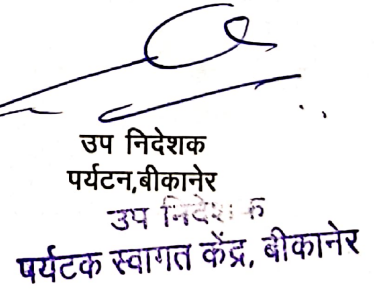 उप निदेशक
पर्यटन,बीकानेर
उप निदेशक
पर्यटक स्वागत केंद्र, बीकानेर